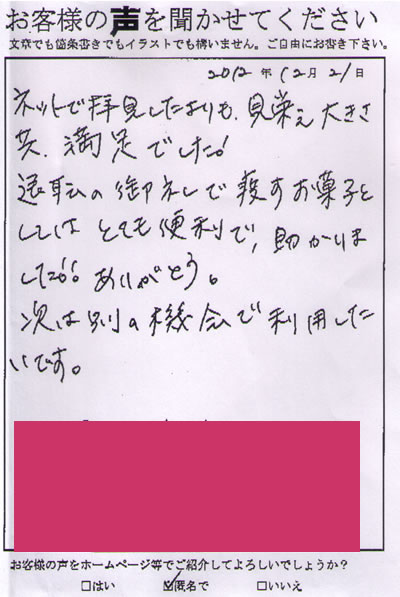 お客様の声を聞かせてください
文章でも箇条書きでもイラストでも構いません。ご自由にお書き下さい。
2012年12月21日
ネットで拝見したよりも、見栄え大きさ
共、満足でした!
の御礼で渡すお菓子と
しては とても便利で、助かりま
した!! ありがとう。
次は別の機会で利用した
いです。
お客様の声をホームページ等でご紹介してよろしいでしょうか?
□はい ☑匿名で □いいえ